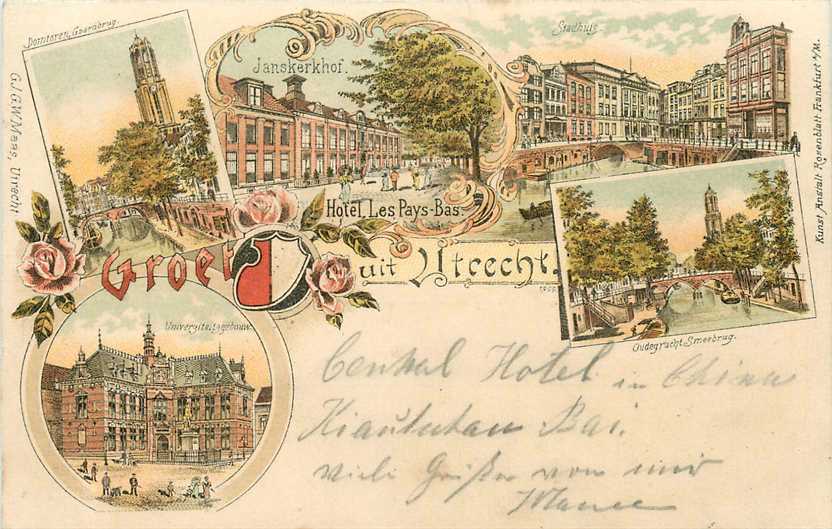 Domtoren, Gaardbrug.
Janskerkhof.
Stadhuis.
Hotel Les Pays-Bas.
Groet uit Utrecht.
Universiteitsgebouw.
Oudegracht Smeebrug.
G.J.G.W. Maas, Utrecht
Kunst Anstalt Rosenblatt Frankfurt a/M.
Central Hotel in China
Kiautschau Bai.
Viele Grüße von mir